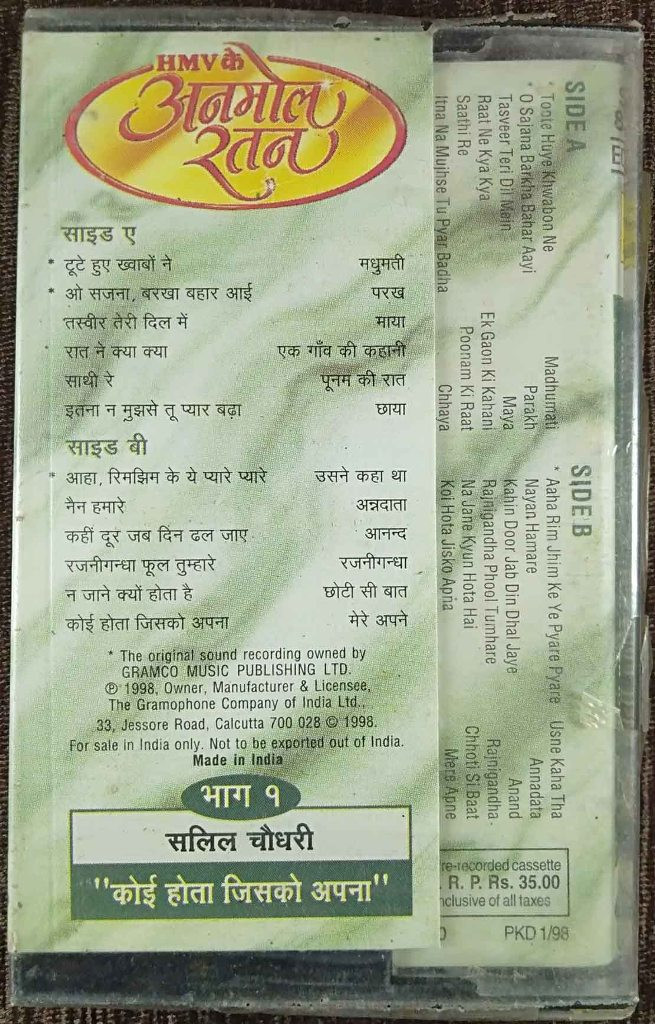 HMV के
अनमोल
रतन
साइड ए
* टूटे हुए ख्वाबों ने मधुमती
* ओ सजना, बरखा बहार आई परख
तस्वीर तेरी दिल में माया
रात ने क्या क्या एक गाँव की कहानी
साथी रे पूनम की रात
इतना न मुझसे तू प्यार बढ़ा छाया
साइड बी
* आहा, रिमझिम के ये प्यारे प्यारे उसने कहा था
नैन हमारे अन्नदाता
कहीं दूर जब दिन ढल जाए आनन्द
रजनीगन्धा फूल तुम्हारे रजनीगन्धा
न जाने क्यों होता है छोटी सी बात
कोई होता जिसको अपना मेरे अपने
* The original sound recording owned by
GRAMCO MUSIC PUBLISHING LTD.
℗ 1998, Owner, Manufacturer & Licensee,
The Gramophone Company of India Ltd.,
33, Jessore Road, Calcutta 700 028 © 1998.
For sale in India only. Not to be exported out of India.
Made in India
भाग १
सलिल चौधरी
"कोई होता जिसको अपना"
SIDE A
* Toote Huye Khwabon Ne Madhumati
* O Sajana Barkha Bahar Aayi Parakh
Tasveer Teri Dil Mein Maya
Raat Ne Kya Kya Ek Gaon Ki Kahani
Saathi Re Poonam Ki Raat
Itna Na Mujhse Tu Pyar Badha Chhaya
SIDE B
* Aaha Rim Jhim Ke Ye Pyare Pyare Usne Kaha Tha
Nayan Hamare Annadata
Kahin Door Jab Din Dhal Jaye Anand
Rajnigandha Phool Tumhare Rajnigandha
Na Jane Kyun Hota Hai Chhoti Si Baat
Koi Hota Jisko Apna Mere Apne
re-recorded cassette
. R. P. Rs. 35.00
nclusive of all taxes
PKD 1/98